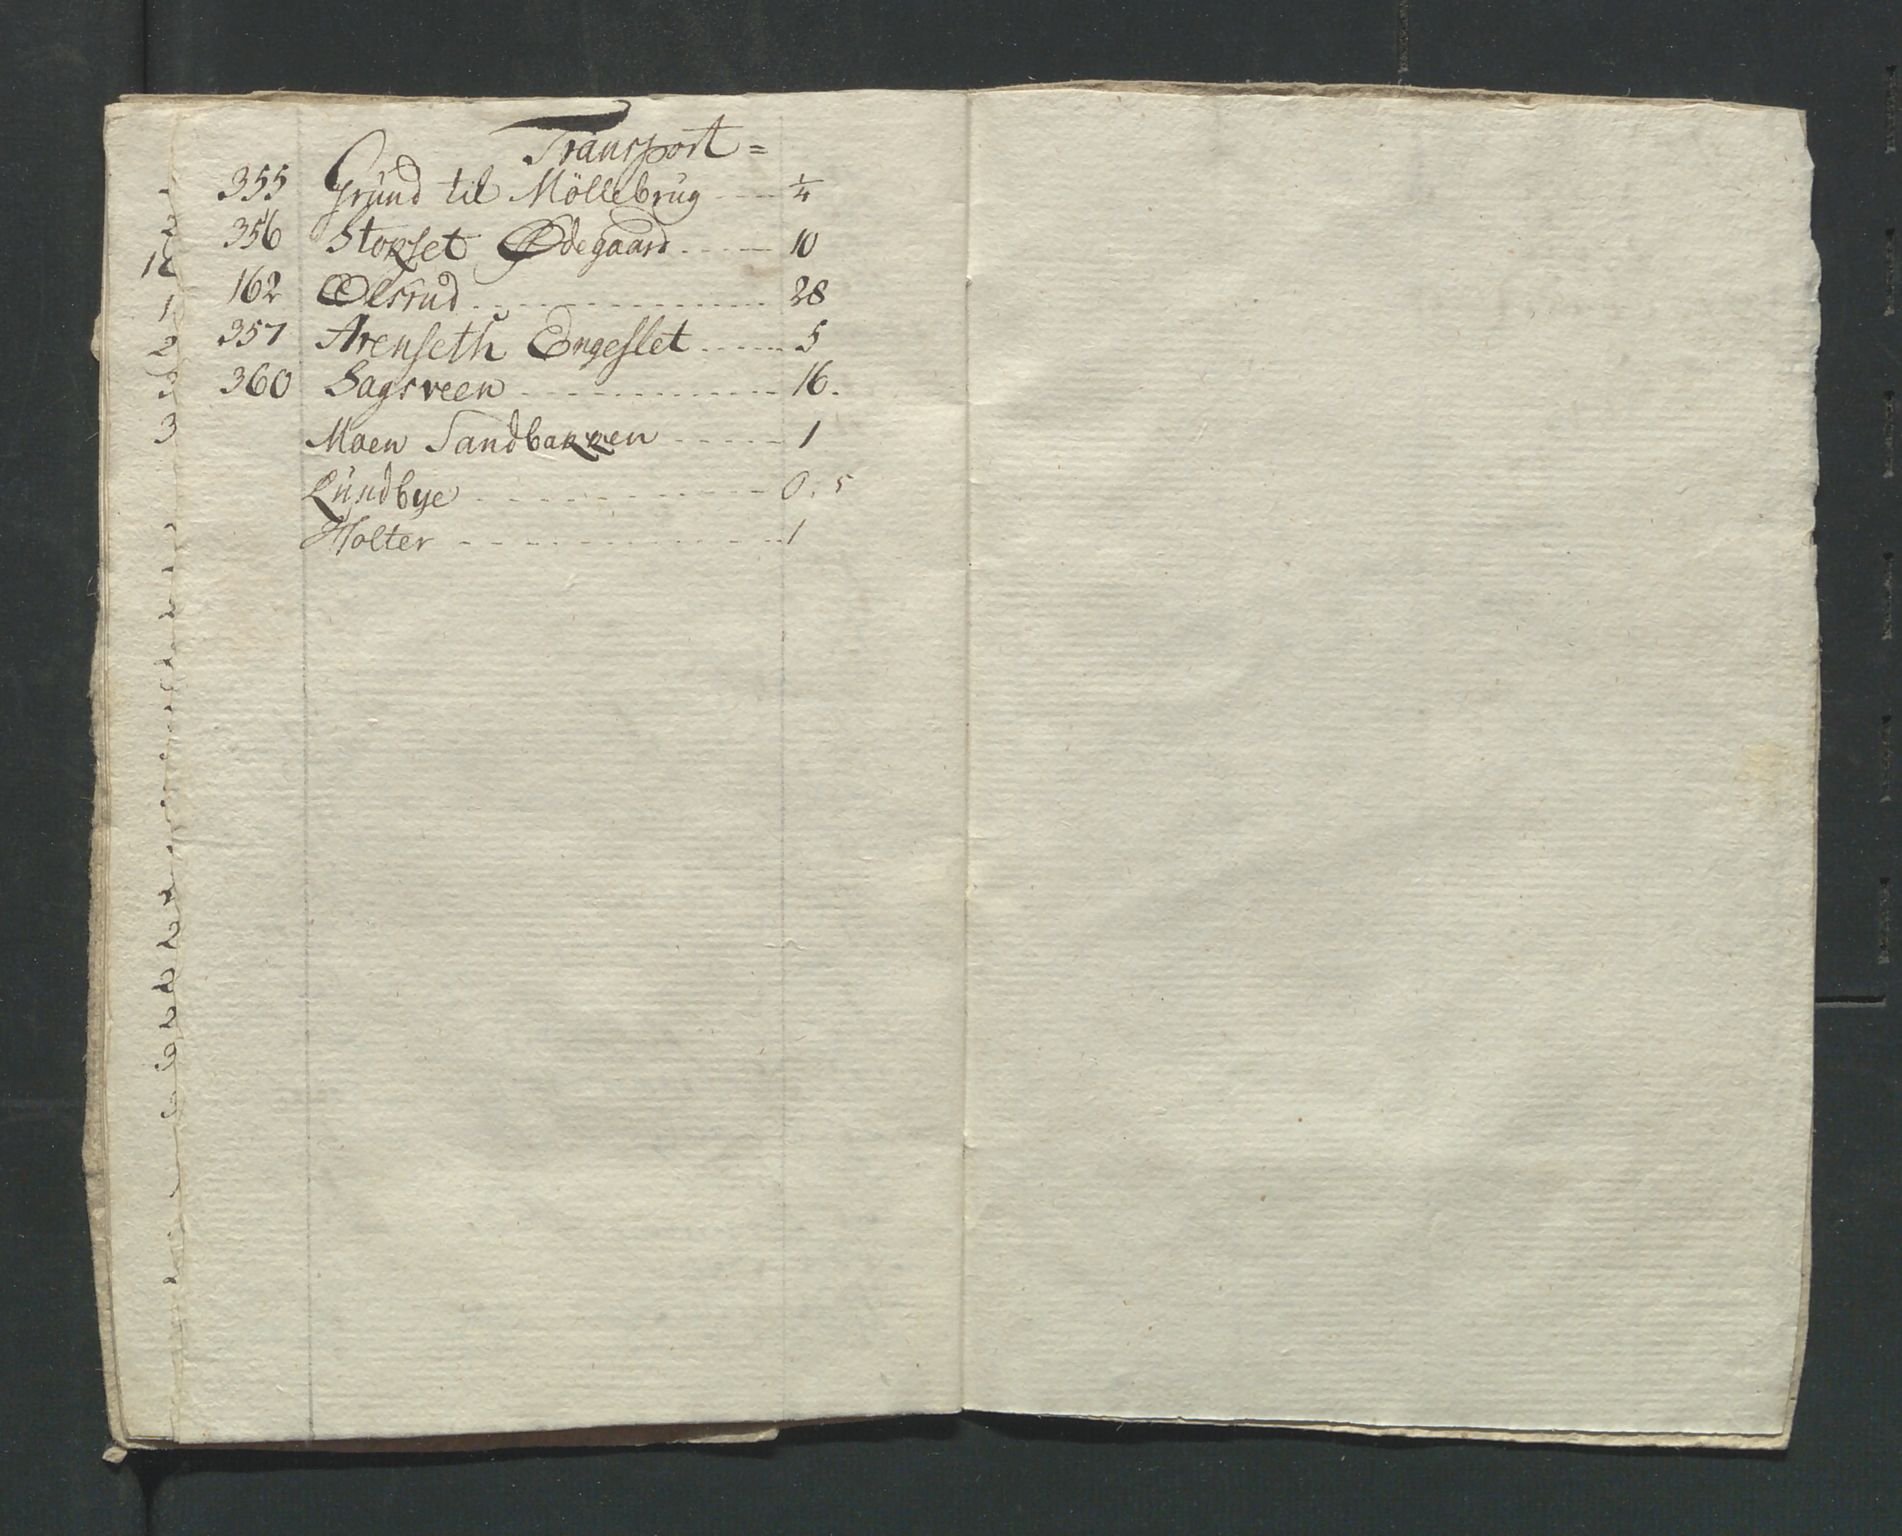 Transport =
355 Grund til Möllebrug - - - 1/4
356 Stokset Ødegaard - - - - - 10
162 Ølsrud - - - - - - - - - - - 28
357 Arenseth Engeslet - - - - - 5
360 Sagsveen - - - - - - - - - - 16.
Moen Sandbakken - - - - - 1
Lundbye - - - - - - - - - - - 0. 5
Holter - - - - - - - - - - - - 1